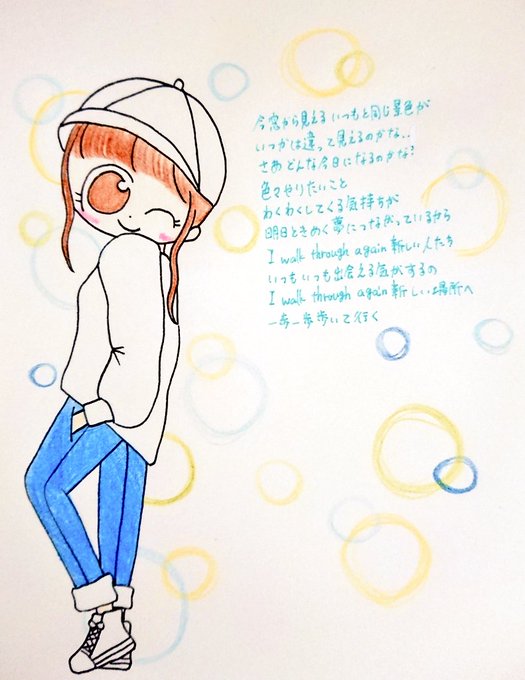 今窓から見える いつもと同じ景色が
いつかは違って見えるのかな..
さあ どんな今日になるのかな?
色々やりたいこと
わくわくしてくる気持ちが
明日ときめく夢につながっているから
I walk through again 新しい人たち
いつもいつも出会える気がするの
I walk through again 新しい場所へ
一歩一歩歩いて行く